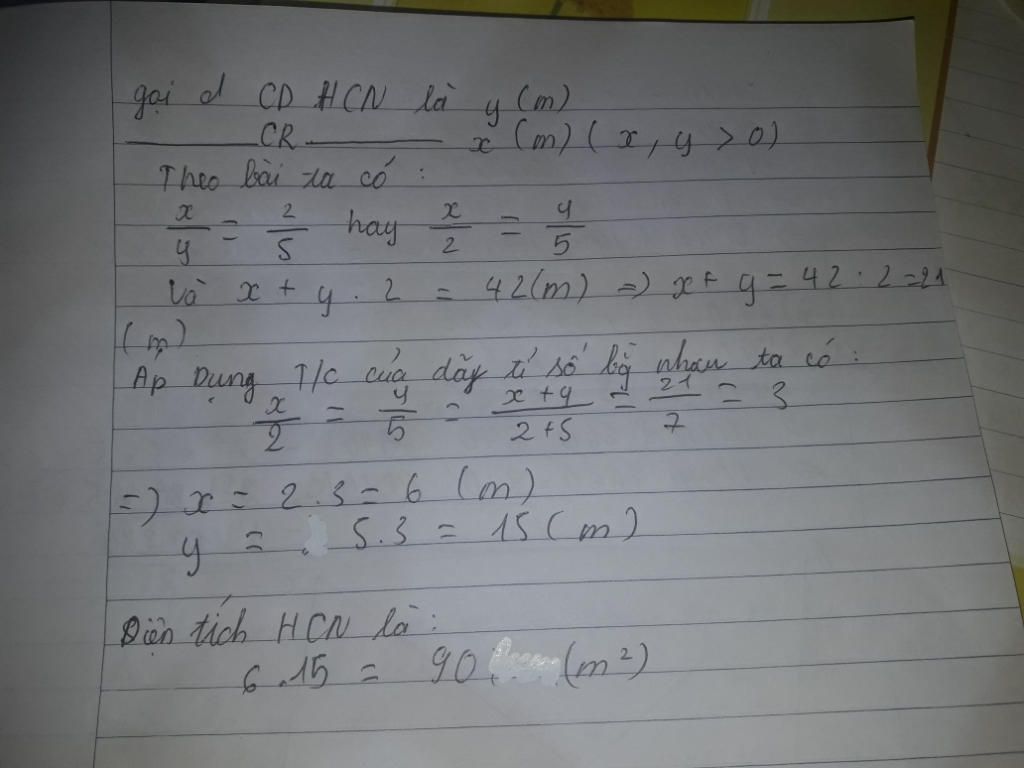 gọi d CD HCN là y (m)
CR x (m) ( x, y > 0)
Theo bài ra có :
x/y = 2/5 hay x/2 = y/5
Và x + y . 2 = 42(m) => x + y = 42 : 2 = 21
(m)
Áp Dụng T/c của dãy tỉ số bg nhau ta có :
x/2 = y/5 = x+y/2+5 = 21/7 = 3
=> x = 2.3 = 6 (m)
y = 5.3 = 15 (m)
Diện tích HCN là :
6.15 = 90 (m²)